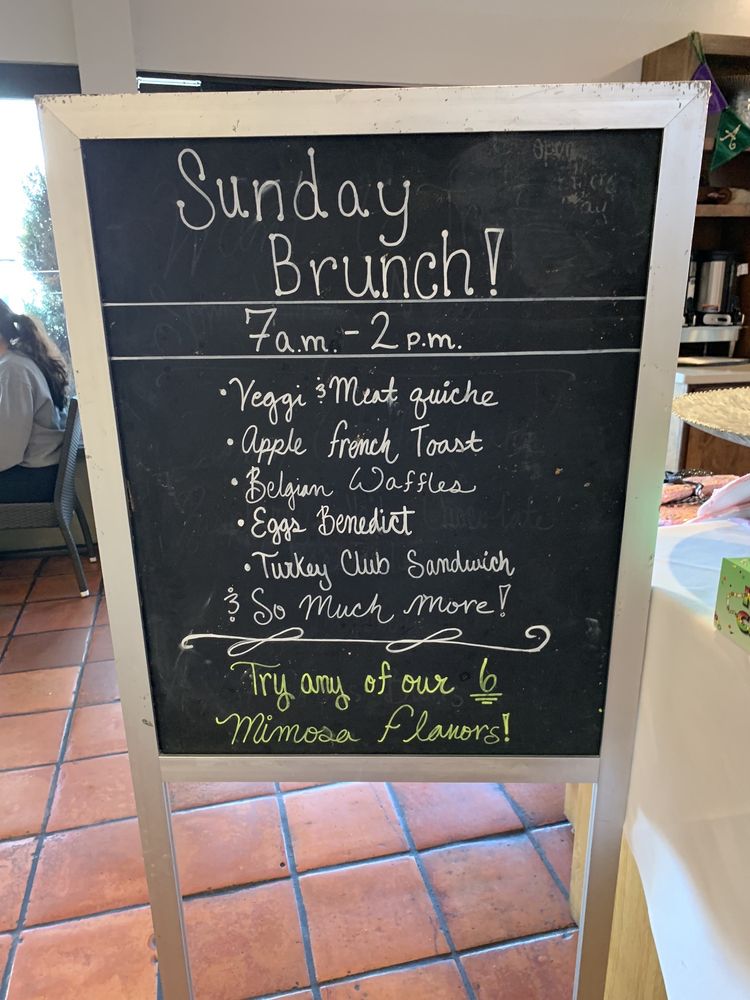 Sunday
Brunch!
7a.m. - 2 p.m.
• Veggi & Meat quiche
• Apple french Toast
• Belgian Waffles
• Eggs Benedict
• Turkey Club Sandwich
& So Much more!
Try any of our 6
Mimosa flavors!